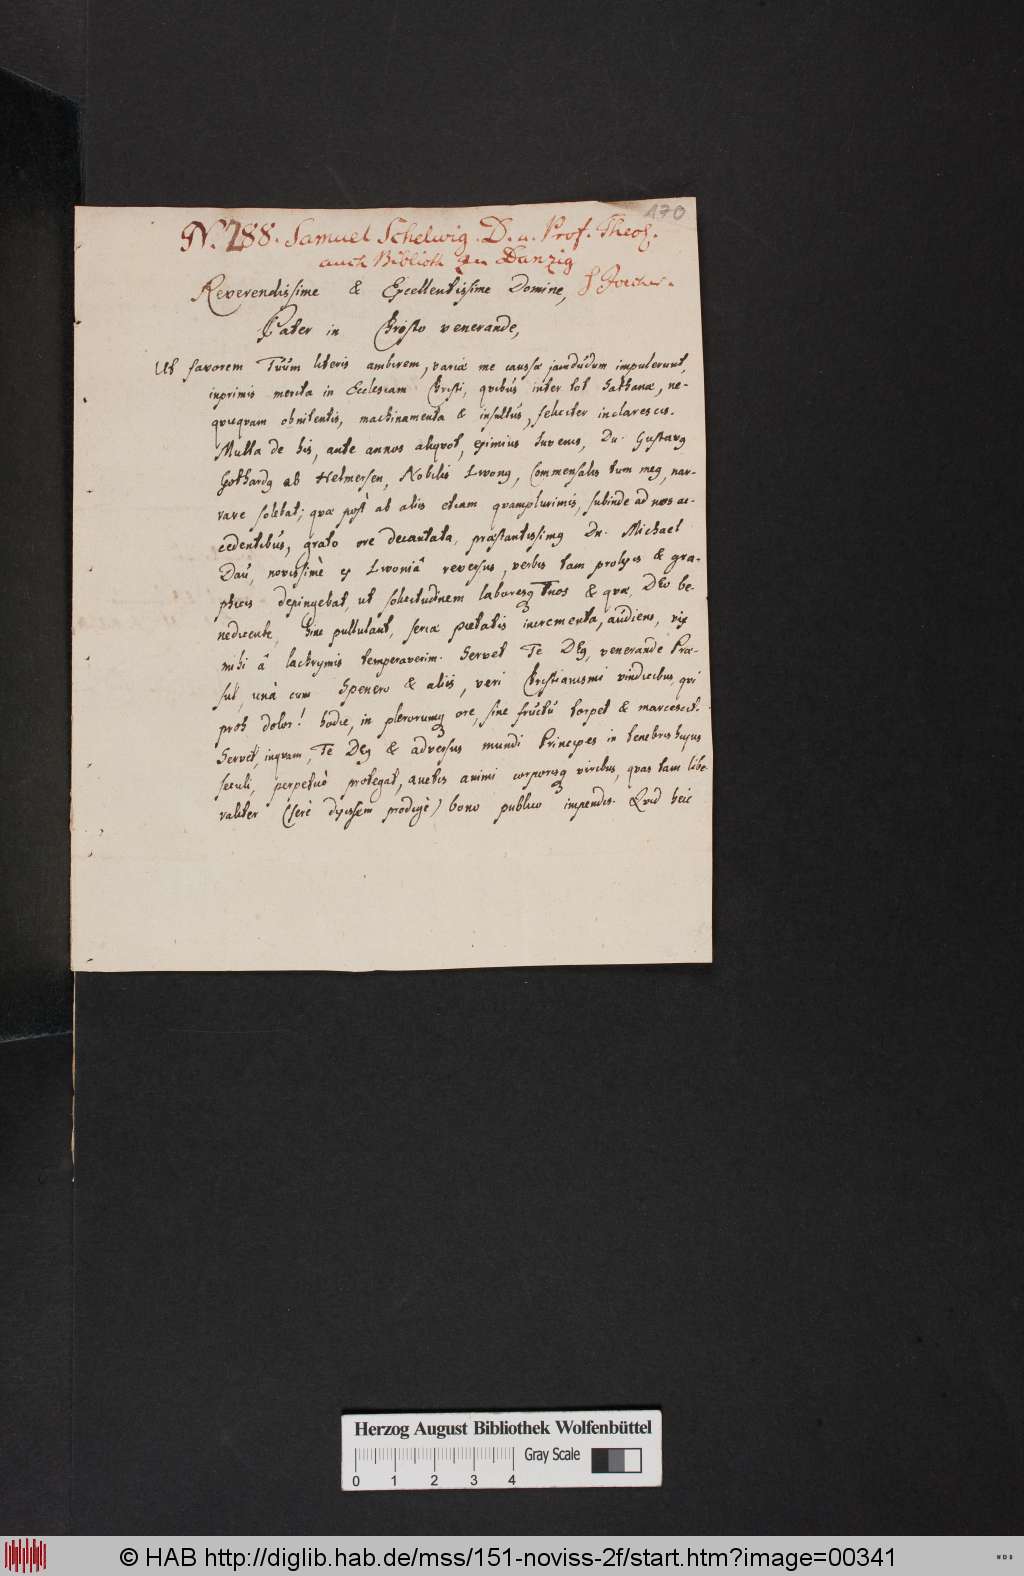 170
N. 288. Samuel Schelwig. D. u. Prof. Theol.
auch Biblioth. zu Danzig
Reverendissime & Excellentissime Domine,
Pater in Christo venerande,
Ut favorem Tuum literis ambirem, variæ me caussæ jamdudum impulerunt,
inprimis merita in Ecclesiam Christi, quibus inter tot Sathanæ, ne-
quicquam obnitentis, machinamenta & insultus, feliciter inclarescis.
Multa de his, ante annos aliquot, eximius Juvenis, Dn. Gustavus
Gothardus ab Helmersen, Nobilis Livonus, Commensalis tum meus, nar-
rare solebat; quæ post ab aliis etiam quamplurimis, subinde ad nos ac-
cedentibus, grato ore decantata, præstantissimus Dn. Michael
Dau, novissimè ex Livoniâ reversus, verbis tam prolixis & gra-
phicis depingebat, ut solicitudinem laboresq Tuos & quæ, DEO be-
nedicente, hinc pullulant, seriæ pietatis incrementa, audiens, vix
mihi â lachrymis temperaverim. Servet Te DEus, venerande Præ-
sul, unà cum Spenero & aliis, veri Christianismi vindicibus, qui
proh dolor! hodie, in plerorumq ore, sine fructu torpet & marcescit.
Servet, inquam, Te DEus & adversus mundi Principes in tenebris hujus
seculi, perpetuò protegat, auctis animi corporisq viribus, quas tam libe-
raliter (ferè dixissem prodigè) bono publico impendis. Quid heic
Herzog August Bibliothek Wolfenbüttel
Gray Scale
0 1 2 3 4
© HAB http://diglib.hab.de/mss/151-noviss-2f/start.htm?image=00341